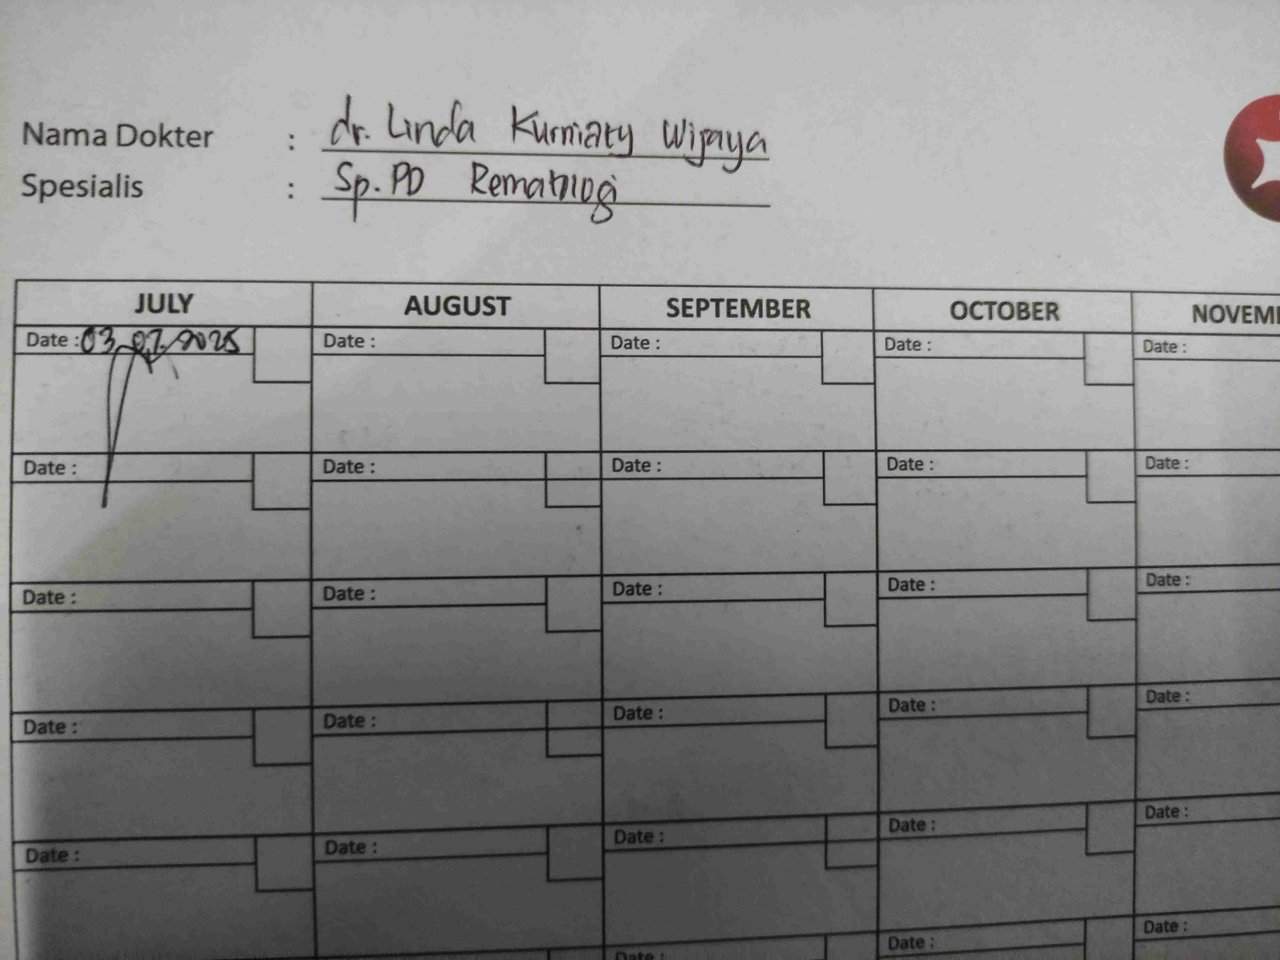 Nama Dokter : dr. Linda Kurniaty Wijaya
Spesialis : Sp.PD Rematologi
JULY AUGUST SEPTEMBER OCTOBER NOVEM
Date : 03.07.2025 Date : Date : Date : Date :
Date : Date : Date : Date : Date :
Date : Date : Date : Date : Date :
Date : Date : Date : Date : Date :
Date : Date : Date : Date : Date :
Date : Date : Date :